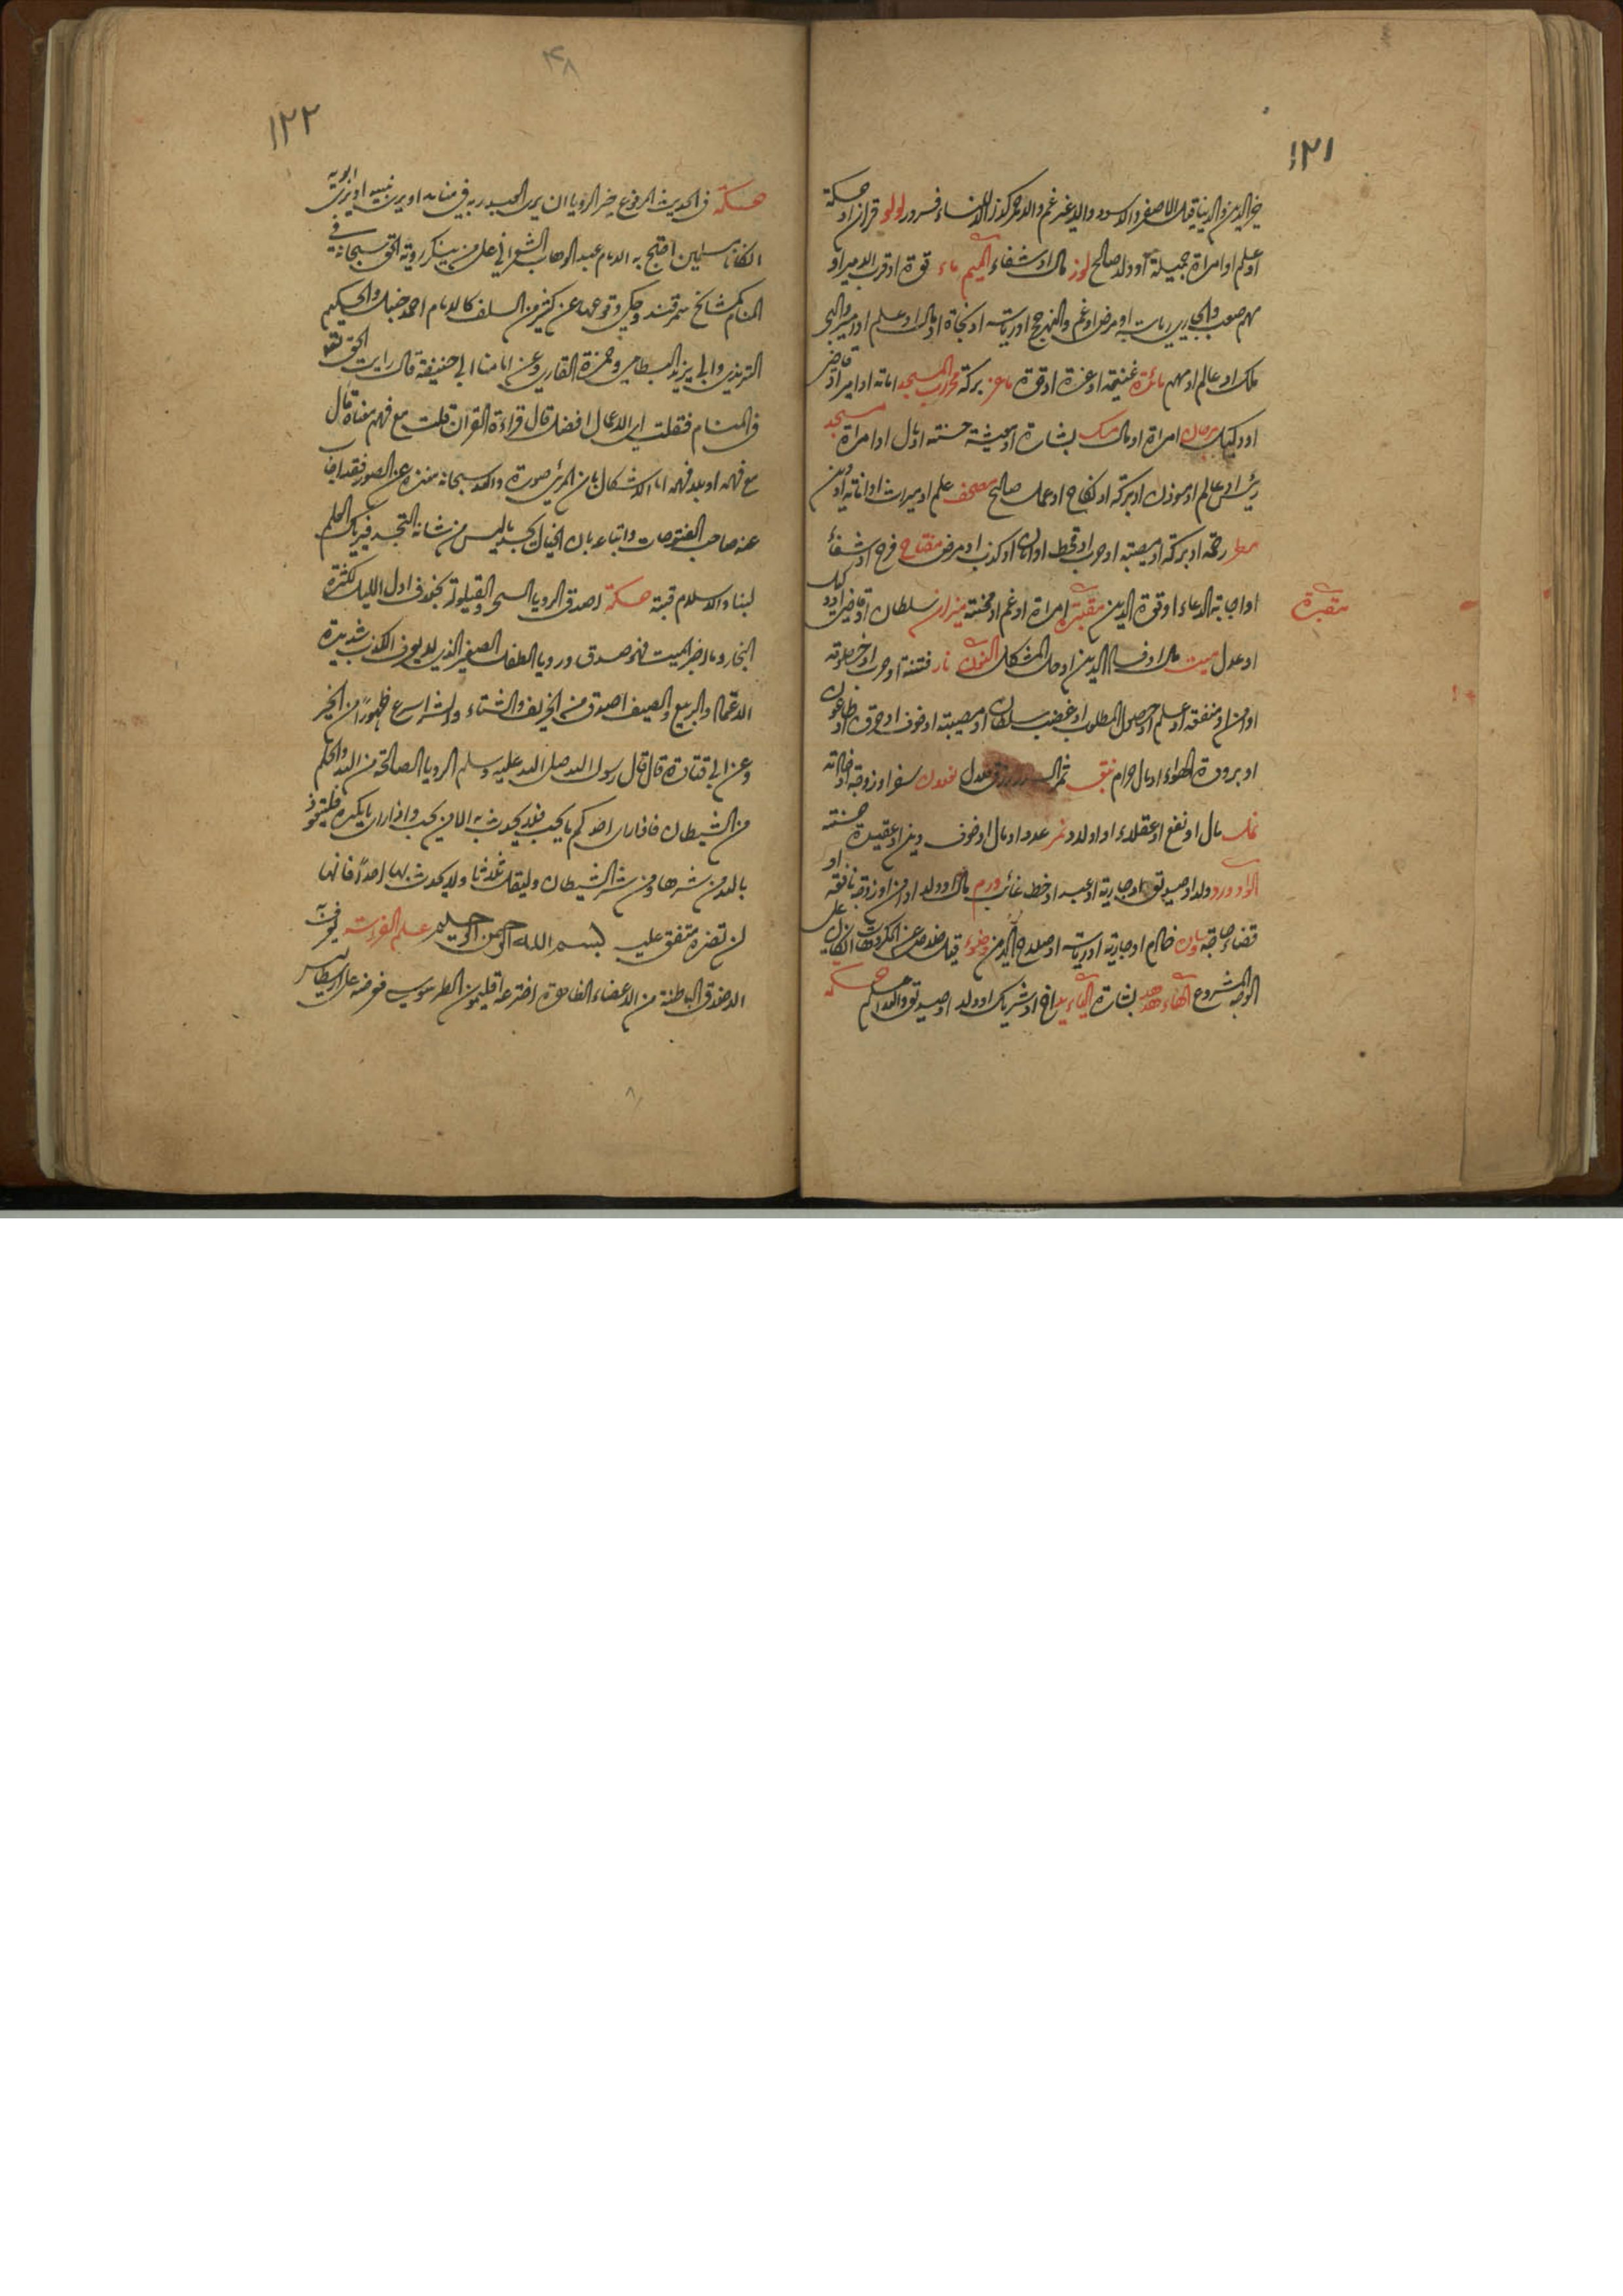 ١٢١
خير الدين والدنيا قيل الا الاصفر والاسود والا غير غم والاحمر كونه للنساء فسرور لولو قران او حكمة
او علم او امراة جميلة او ولد صالح لوز مال او شفاء الميم ماء قوة او قرب الامير او
مهم صعب والجاري رياسة او مرض او غم والنهر حج او رياسة او نجاة او مال او علم او امير والبحر
ملك او عالم او مهم مائدة غنيمة او عزة او قوة ماعز بركة محراب المسجد امانة او امير او قاضي
او وكيل مرجان امراة او مال مسك بشارة او معيشة حسنة او مال او امراة مسجد
رئيس او عالم او موذن او بركة او نكاح او عمل صالح مصحف علم او ميراث او امانة او دين
مطر رحمة او بركة او مصيبة او حرب او قحط او امان او كذب او مرض مفتاح فرح او شفاء
او اجابة الدعاء او قوة الدين مقبرة امراة او غم او محنة ميزان سلطان او قاضي او
مقبرة
او عدل ميت مال او فساد الدين او حل المشكل النون نار فتنة او حرب او
او امن او منفقة او علم او حصول المطلوب او غضب سلطان او مصيبة او خوف او حرق او طاعون
او برودة الهواء او مال حرام نبق ثمر السدر رزق نعلان سفر او زوجة او
نمل مال او نفع او عقلاء او اولاد نمر عدو او مال او خوف دين او عقيدة حسنة
الواو ورد ولد او صديق او جارية او عبد او خط غائب ورم مال او ولد او امن او زوجة نافعة او
قضاء حاجة خادم او جارية او رياسة او صلاح الدين وضوء قيل خلاص عن المكروهات ان كان على
الوجه المشروع الهاء هدهد بشارة الياء يد اخ او شريك او ولد او صديق والله اعلم حكمة
١٢٢
٤٨
حكمة في الحديث المرفوع خير الرؤيا ان يرى العبد ربه في منامه او يرى نبيه او يرى ابويه
ان كانا مسلمين احتج به الامام عبد الوهاب الشعراني على من ينكر روية الحق سبحانه في
المنام كمشائخ سمرقند وحكي وقوعها عن كثير من السلف كالامام احمد حنبل والحكيم
الترمذي وابي يزيد البسطامي وحمزة القاري وعن امامنا ابي حنيفة قال رايت الحق تعالى
في المنام فقلت اي الاعمال افضل قال قراءة القران قلت مع فهم معناه قال
مع فهمه او بلا فهمه اما الاشكال بان المرئي صورة والله سبحانه منزه عن الصور فقد اجاب
عنه صاحب الفتوحات واتباعه بان الخيال يجسد ما ليس من شانه التجسد فيريك العلم
لبنا والاسلام قبة حكمة اصدق الرويا السحر والقيلولة بخلاف اول الليل لكثرة
البخار وما اخبر الميت فهو صدق ورويا الطفل الصغير الذي لا يعرف الكذب شديدة
الاعتماد والربيع والصيف اصدق من الخريف والشتاء والشر اسرع ظهورا من الخير
وعن ابي قتادة قال قال رسول الله صلى الله عليه وسلم الرويا الصالحة من الله والحلم
من الشيطان فاذا راى احدكم ما يحب فلا يحدث به الا من يحب واذا راى ما يكره فليتعوذ
بالله من شرها ومن شر الشيطان وليتفل ثلاثا ولا يحدث بها احدا فانها
لن تضره متفق عليه بسم الله الرحمن الرحيم علم الفراسة يعرف به
الاخلاق الباطنة من الاعضاء الظاهرة اخترعه اقليمون الطرسوسي فعرضه على ارسطاطاليس
٨